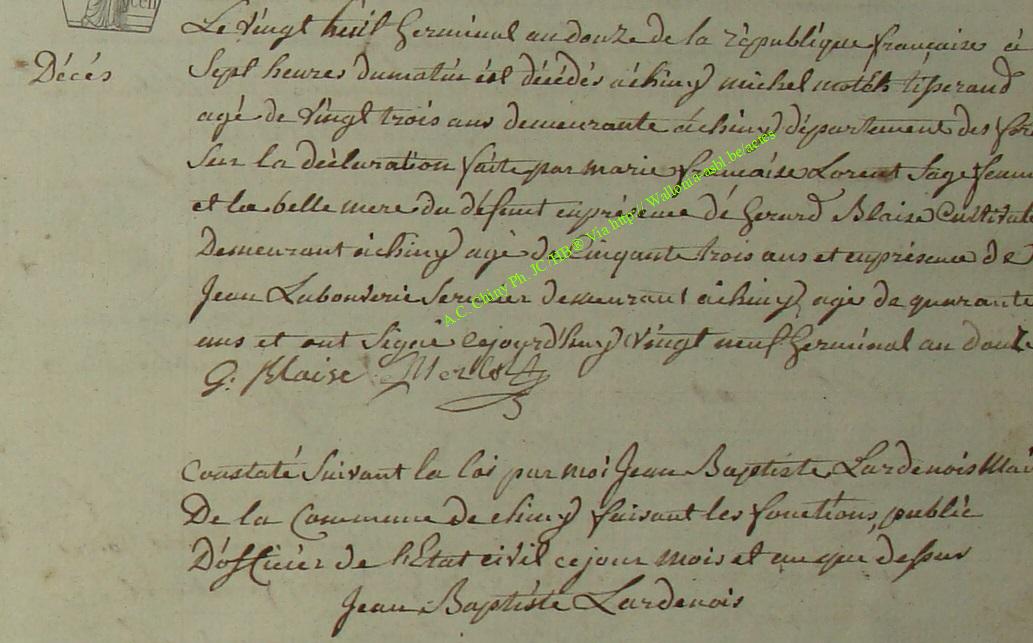 Le vingt huit Germinal an douze de la république françaises à
Décés
Sept heures du matin est décédés à chiny michel tisserand
agé de vingt trois ans demeurante à chiny département des for
Sur la déclaration faite par marie françoise Lorent Sage femme
et la belle mere du défunt en présence de Gerard Blaise Cultivat
Demeurant à chiny agé de Cinquante trois ans et en présence de
Jean Labouverie Serurier demeurant à chiny agé de quarante
ans et ont Signé cejourd'huy vingt neuf Germinal an douze
G: Blaise
A.C. Chiny Ph. JC /HB® Via http// Wallonia-asbl.be/actes
Constaté Suivant la loi par moi Jean Baptiste Lardenois Mai
De la Commune de chiny faisant les fonctions public
D'officier de l'Etat civil ce jour mois et an que dessus
Jean Baptiste Lardenois